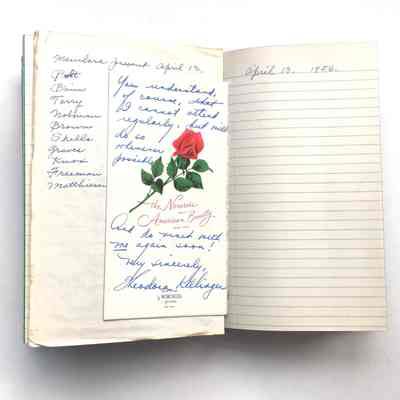 Members present April 13,
Bolt
Bain
Terry
Notman
Browne
Shells
Graves
Knox
Freeman
Matthiessen
You understand,
of course, that
I cannot attend
regularly, but will
do so
whenever
possible.
The Nourse
American Beauty
And do meet with
me again soon!
Very sincerely,
Theodora
April 13, 1956.